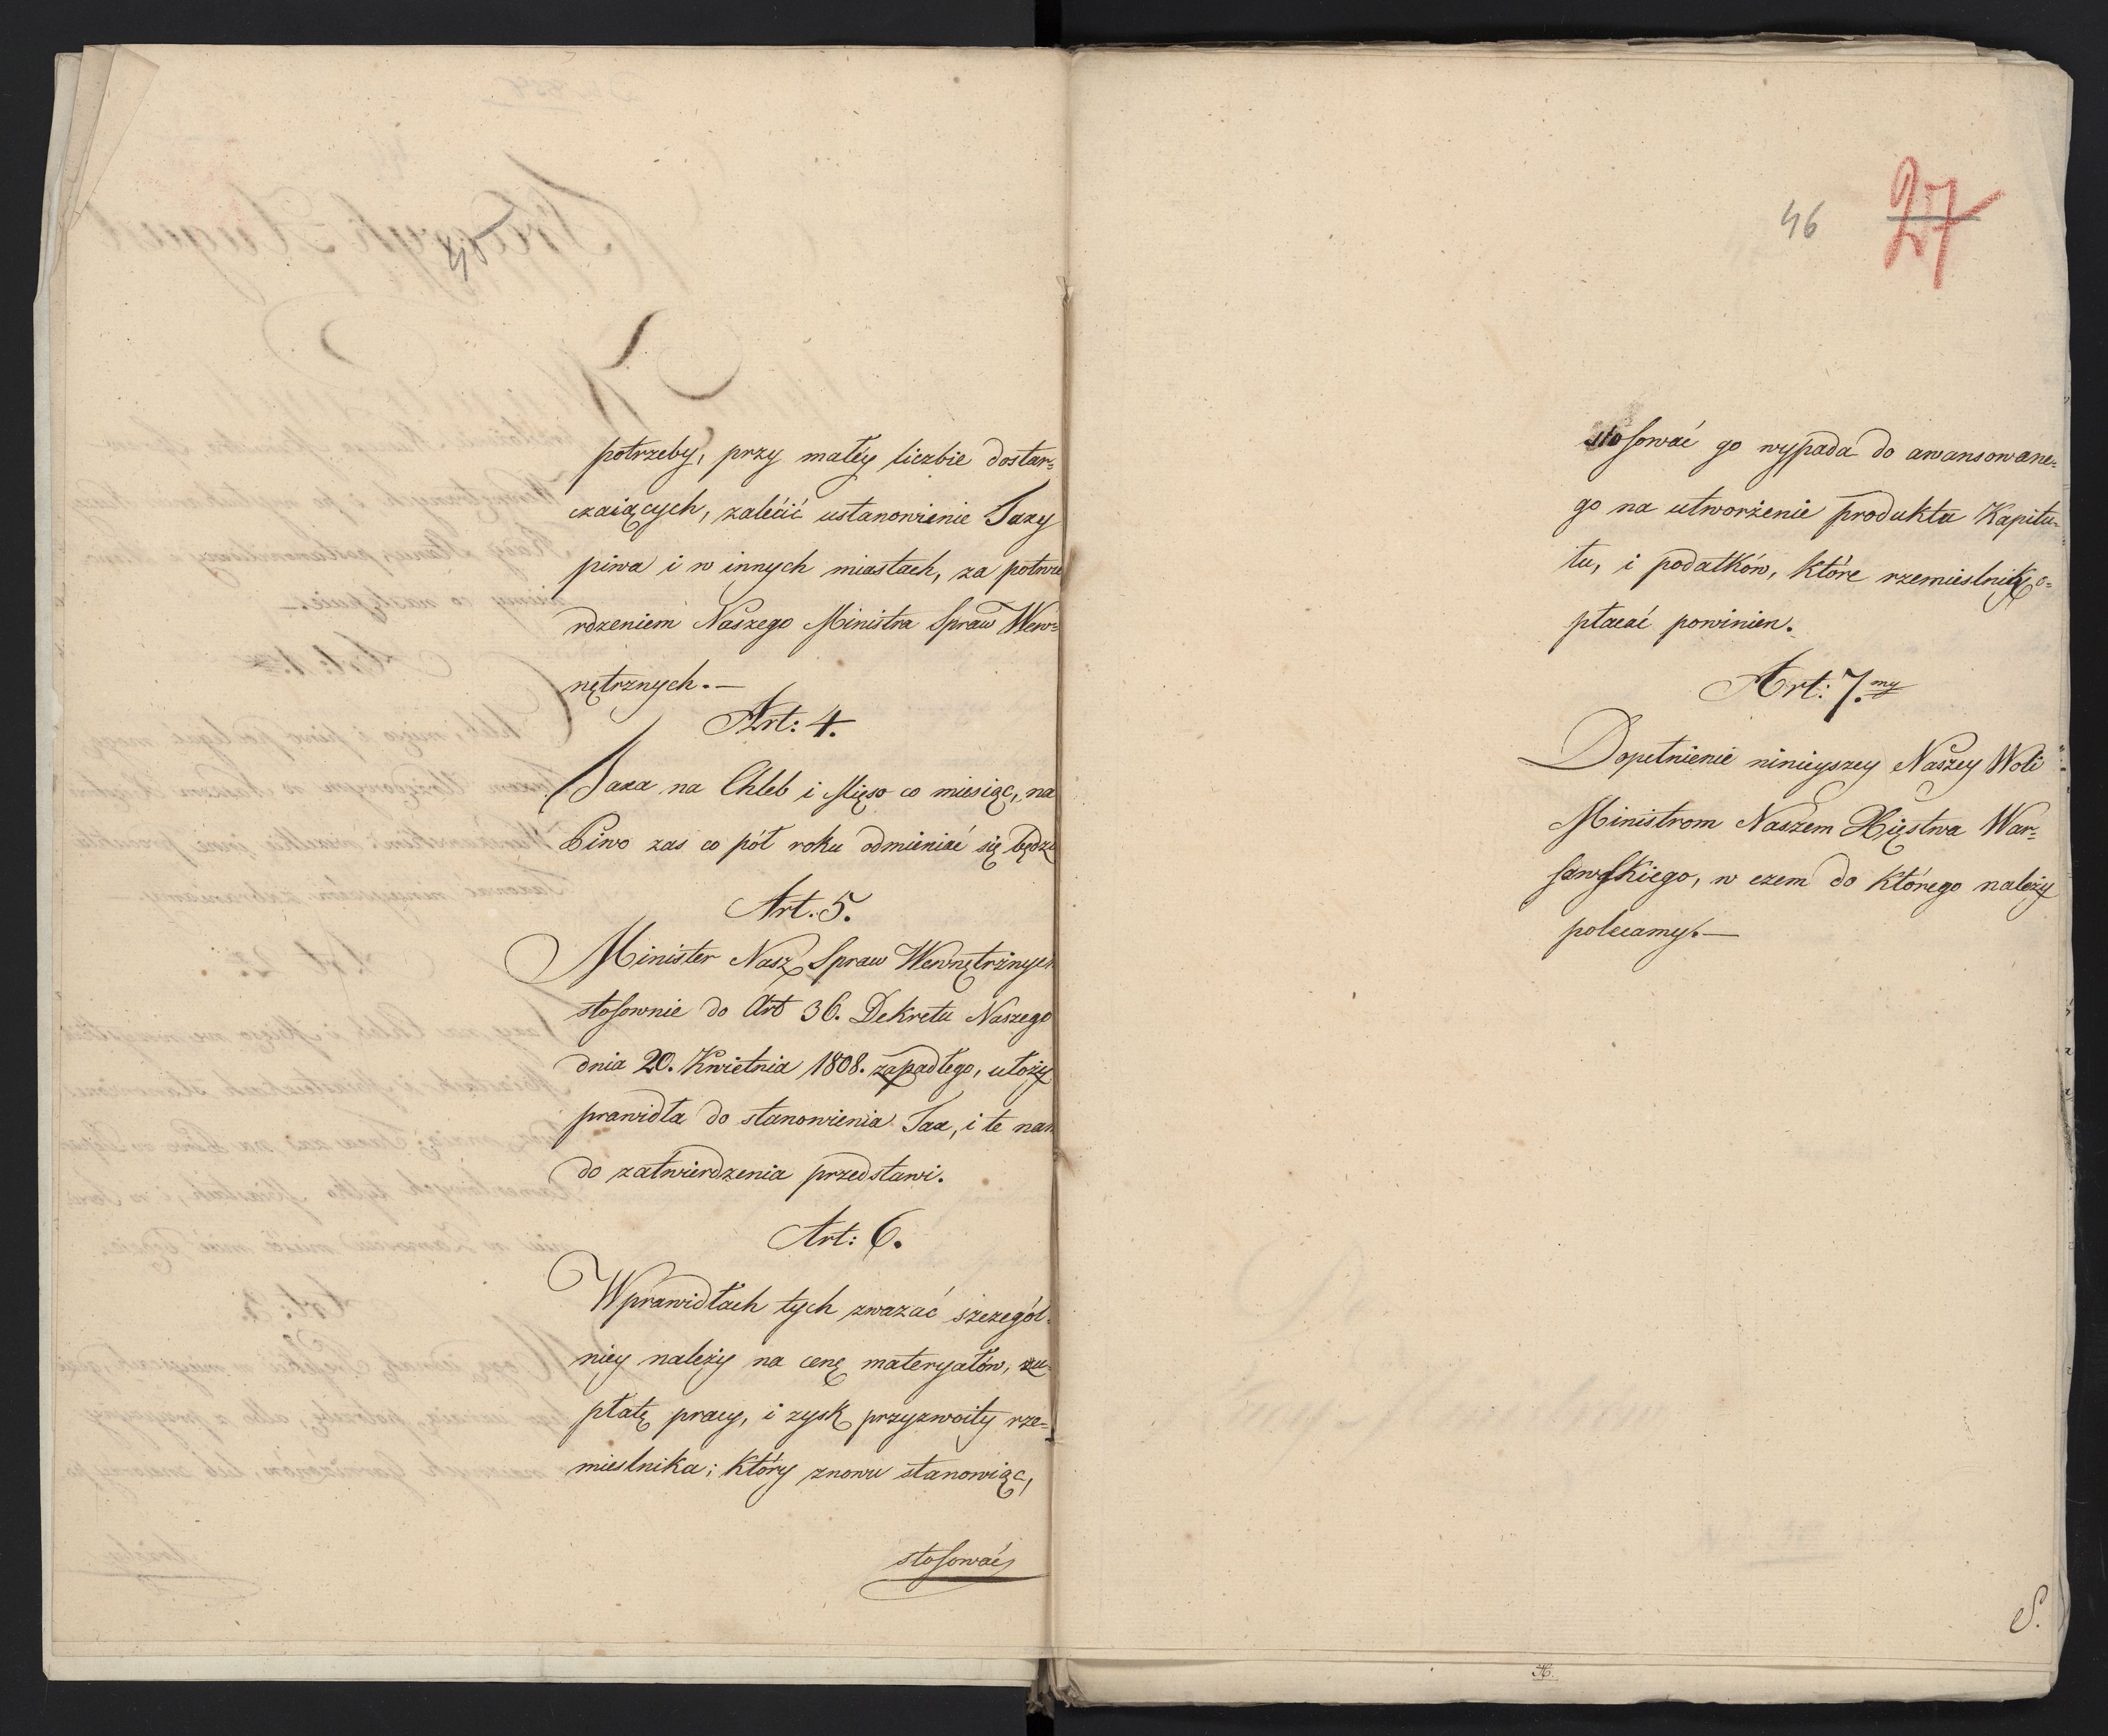 potrzeby, przy małéy liczbie dostar=
czaiących, zalécić ustanowienie Taxy
piwa i w innych miastach, za potwie
rdzeniem Naszego Ministra Spraw Wew=
nętrznych.—
Art: 4.
Taxa na Chleb i Mięso co miesiąc, na
Piwo zas co pół roku odmieniać się będzie
Art. 5.
Minister Nasz Spraw Wewnętrznych
stosownie do Art 36. Dekretu Naszego
dnia 20. Kwietnia 1808. zapadłego, ułoży
prawidła do stanowienia Tax, i te nam
do zatwierdzenia przedstawi.
Art: 6.
W prawidłach tych zwazać szczegól=
niey należy na cenę materyałów, za=
płatę pracy, i zysk przyzwoity rze=
mieslnika; który znowu stanowiąc,
stosować
46 27
stosować go wypada do awansowane=
go na utworzenie produktu Kapita=
łu, i podatków, które rzemieslnik o=
płacać powinien.
Art: 7.my
Dopełnienie ninieyszey Naszey Woli
Ministrom Naszem Xięstwa War=
sawskiego, w czem do którego należy
polecamy.—
S.